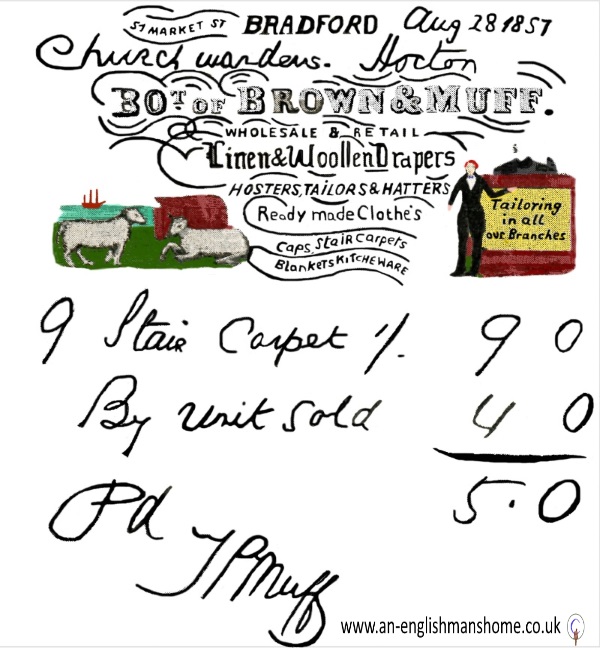 57 MARKET ST BRADFORD Aug 28 1857
Church wardens. Horton
BOT OF BROWN & MUFF.
WHOLESALE & RETAIL
Linen & Woollen Drapers
HOSTERS, TAILORS & HATTERS
Ready made Clothe's
Caps, Stair Carpets
Blankets KITCHEWARE
Tailoring
in all
our Branches
9 Stair Carpet 1/. 9 0
By unit sold 4 0
5.0
Pd
T P Muff
www.an-englishmanshome.co.uk